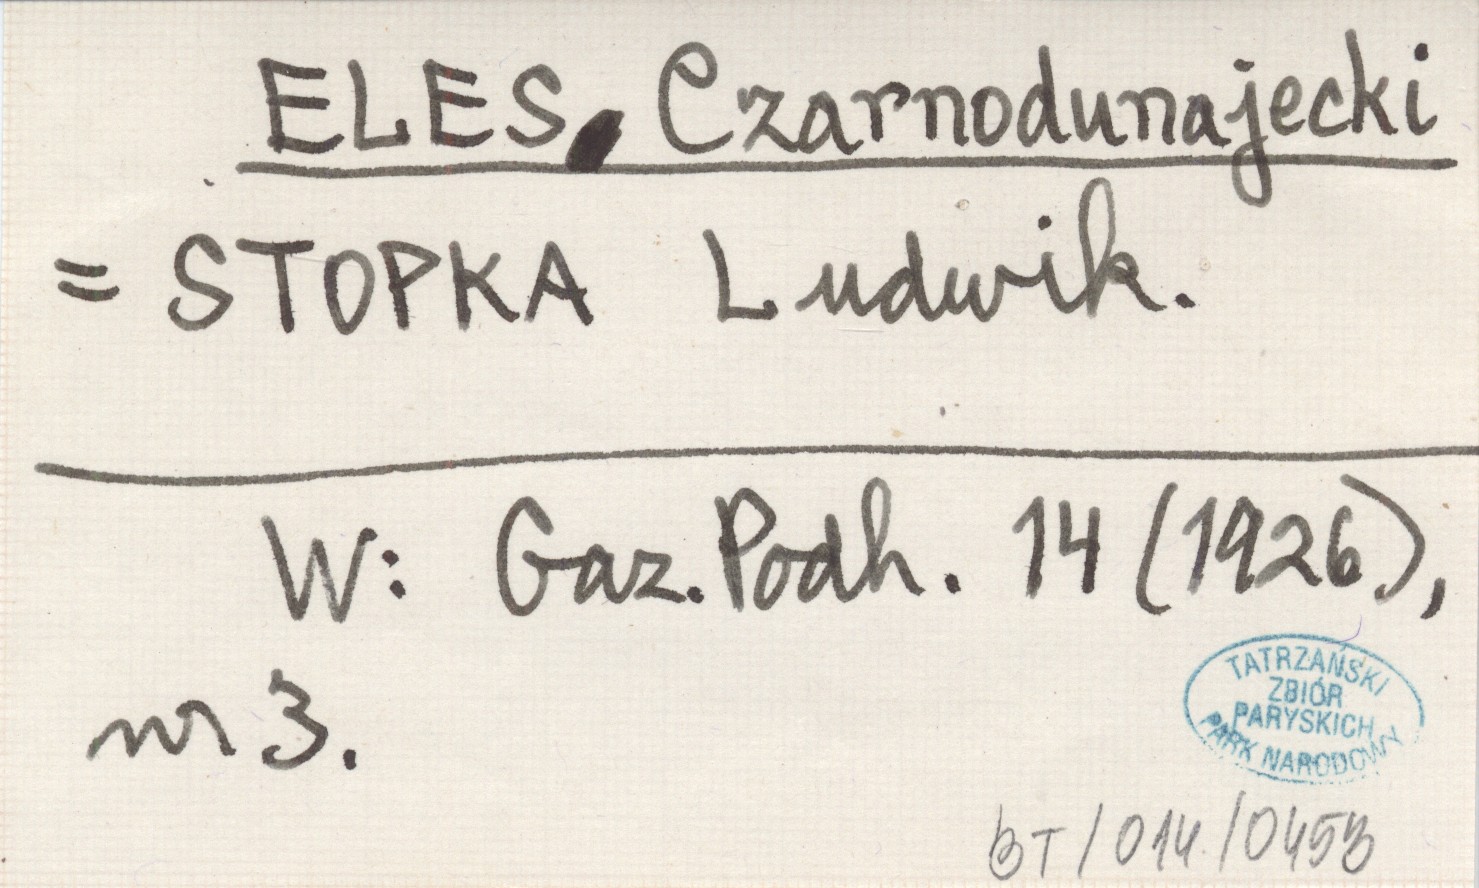 ELES Czarnodunajecki
= STOPKA Ludwik.
W: Gaz. Podh. 14 (1926),
nr 3.
TATRZAŃSKI
ZBIÓR
PARYSKICH
PARK NARODOWY
BT/014/0453